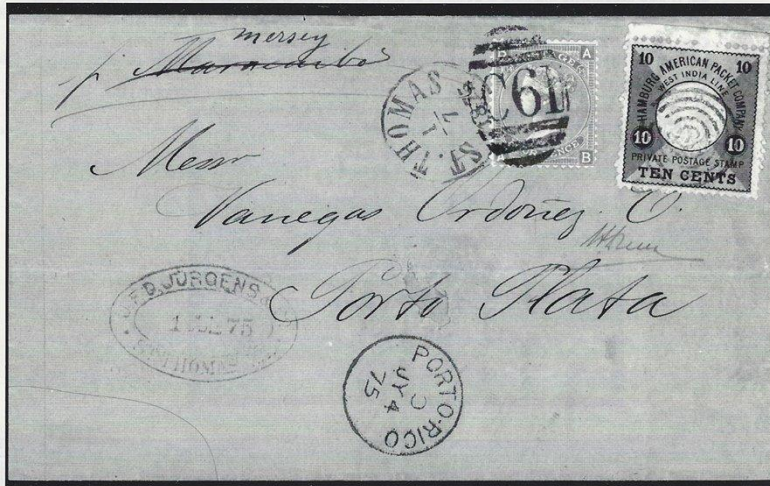 mersey
p. Maracaibo
ST. THOMAS
1/7
1875
C61
B A
A B
PENCE
10 10
HAMBURG AMERICAN PACKET COMPANY
WEST INDIA LINE
10 10
PRIVATE POSTAGE STAMP
TEN CENTS
Messr
Vanegas Ordoñez C.
Porto Plata
J.F.D. JÜRGENS
1 JUL 75
ST THOMAS
PORTO-RICO
C
JY 4
75